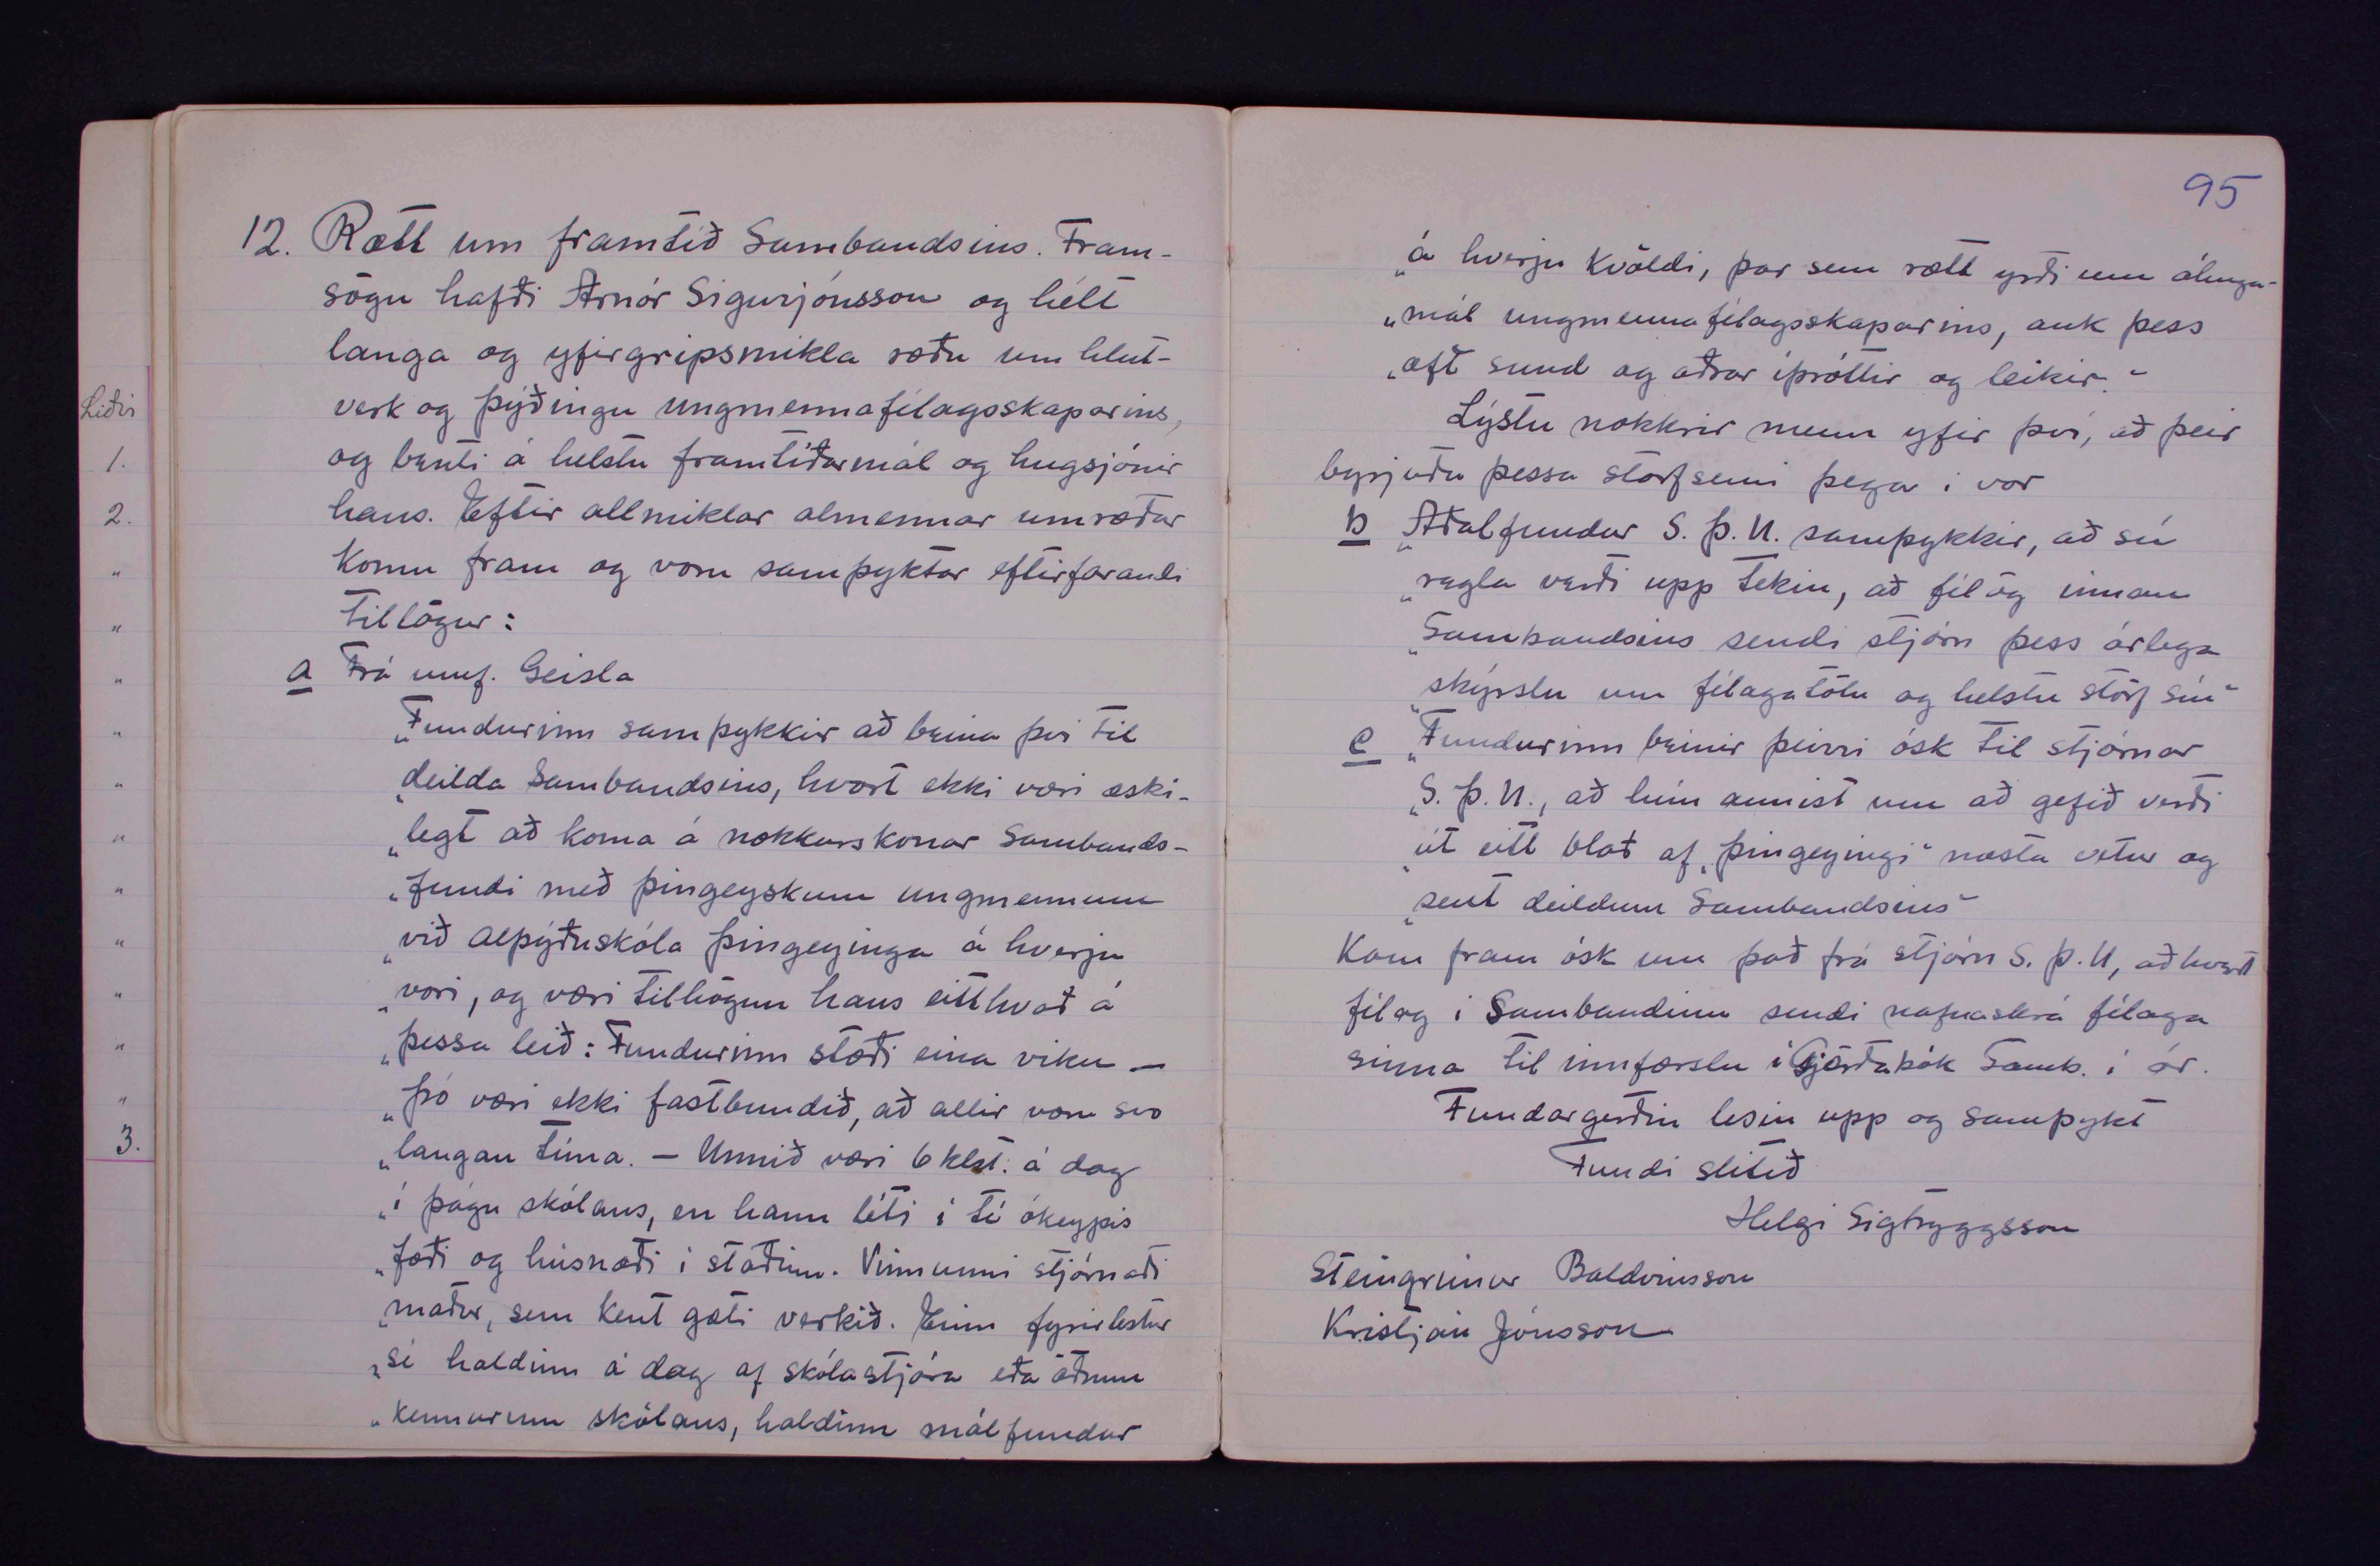 Liðir
1.
2.
"
"
"
"
"
"
"
"
"
"
"
3.
12. Rætt um framtíð Sambandsins. Fram-
sögu hafði Arnór Sigurjónsson og hélt
langa og yfirgripsmikla ræðu um hlut-
verk og þýðingu ungmennafélagsskaparins,
og benti á helstu framtíðarmál og hugsjónir
hans. Eftir allmiklar almennar umræður
komu fram og voru samþyktar eftirfarandi
tillögur:
a Frá umf. Geisla
„Fundurinn samþykkir að beina því til
„deilda Sambandsins, hvort ekki væri æski-
„legt að koma á nokkurskonar Sambands-
„fundi með þingeyskum ungmennum
„við Alþýðuskóla Þingeyinga á hverju
„vori, og væri tilhögun hans eitthvað á
„þessa leið: Fundurinn stæði eina viku –
„þó væri ekki fastbundið, að allir væru svo
„langan tíma. – Unnið væri 6 klst. á dag
„í þágu skólans, en hann léti í té ókeypis
„fæði og húsnæði í staðinn. Vinnunni stjórnaði
„maður, sem kent gæti verkið. Einn fyrirlestur
„sé haldinn á dag af skólastjóra eða öðrum
„kennurum skólans, haldinn málfundur
95
„á hverju kvöldi, þar sem rætt yrði um áhuga-
„mál ungmennafélagsskaparins, auk þess
„æft sund og aðrar íþróttir og leikir."
Lýstu nokkrir menn yfir því, að þeir
byrjuðu þessa starfsemi þegar í vor
b „Aðalfundur S. Þ. U. samþykkir, að sú
„regla verði upp tekin, að félög innan
„Sambandsins sendi stjórn þess árlega
„skýrslu um félagatölu og helstu störf sín"
c „Fundurinn beinir þeirri ósk til stjórnar
„S. Þ. U., að hún annist um að gefið verði
„út eitt blað af „Þingeyingi" næsta vetur og
„sent deildum Sambandsins"
Kom fram ósk um það frá stjórn S. Þ. U, að hvert
félag í Sambandinu sendi nafnaskrá félaga
sinna til innfærslu í Gjörðabók Samb. í ár.
Fundargerðin lesin upp og samþykt
Fundi slitið
Helgi Sigtryggsson
Steingrímur Baldvinsson
Kristján Jónsson